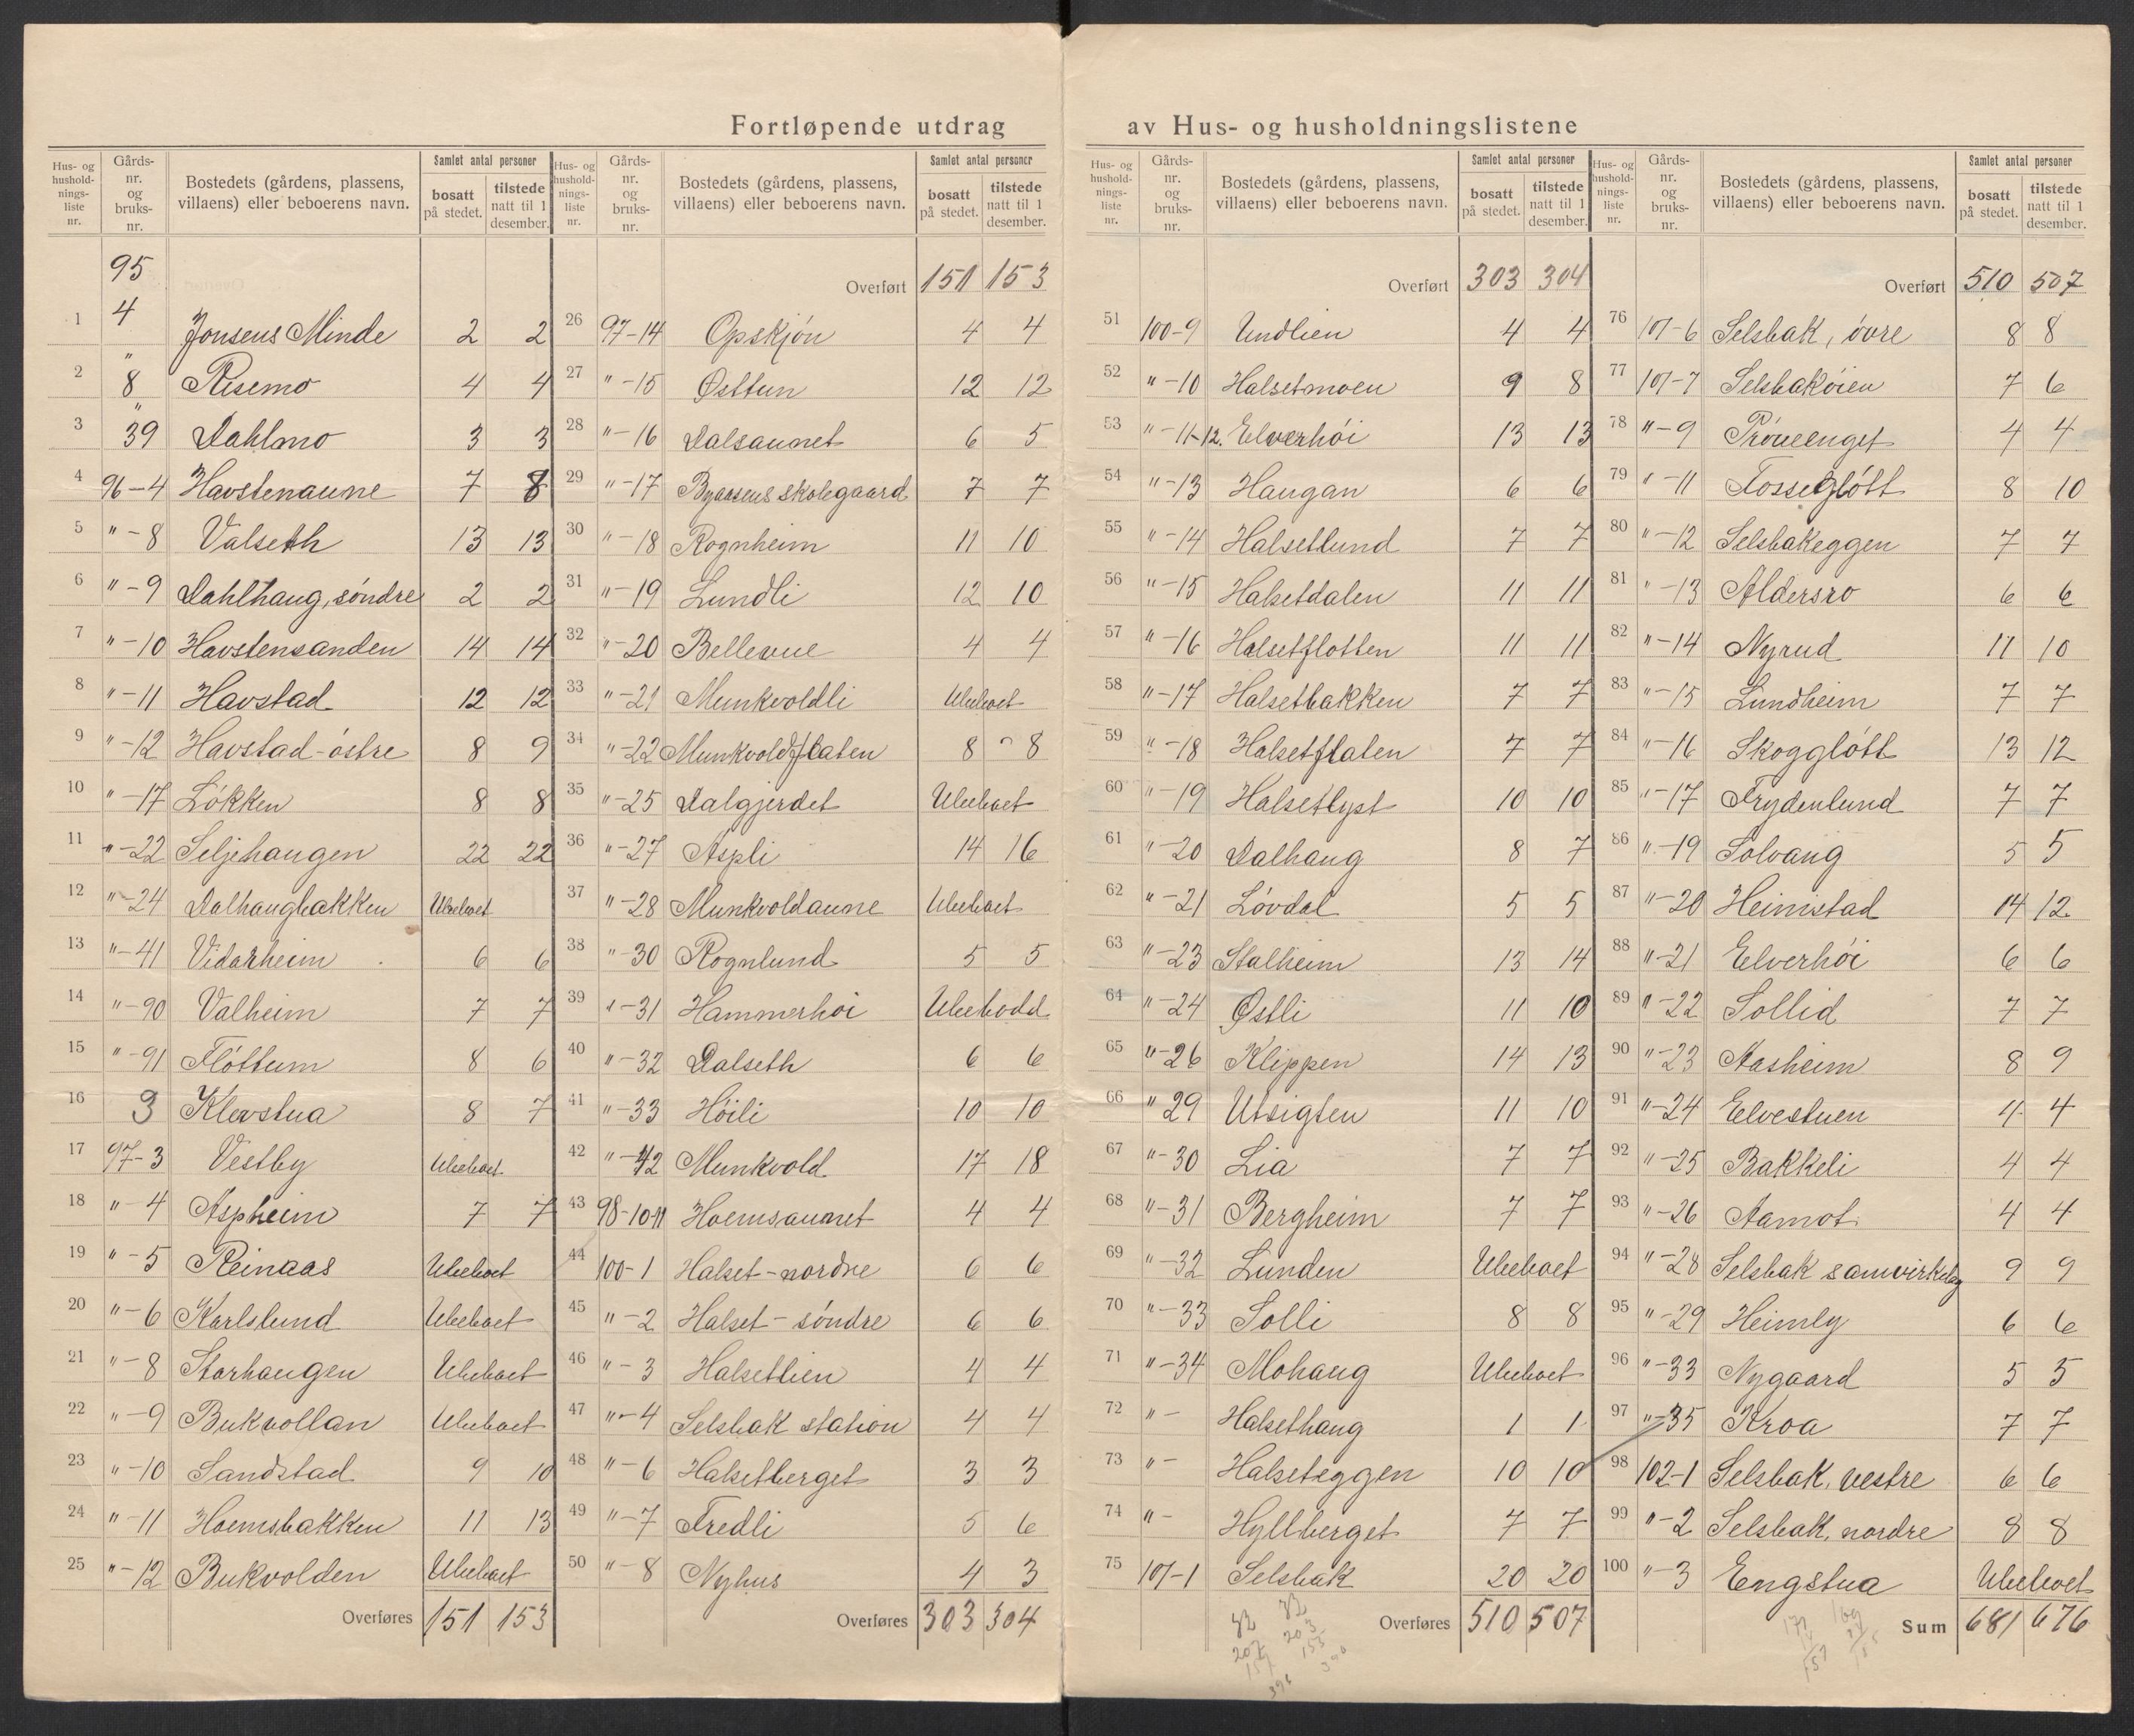 Fortløpende utdrag av Hus- og husholdningslistene
Hus- og husholdnings-liste nr. | Gårds-nr. og bruks-nr. | Bostedets (gårdens, plassens, villaens) eller beboerens navn. | Samlet antal personer | bosatt på stedet. | tilstede natt til 1 desember.
95
1 4 Jonsens Minde 2 2
2 " 8 Risemo 4 4
3 " 39 Dahlmo 3 3
4 96-4 Havstenaune 7 8
5 "-8 Valseth 13 13
6 "-9 Dahlhaug, söndre 2 2
7 "-10 Havstensanden 14 14
8 "-11 Havstad 12 12
9 "-12 Havstad-östre 8 9
10 "-17 Lökken 8 8
11 "-22 Seljehaugen 22 22
12 "-24 Dalhaugbakken Ubeboet
13 "-41 Vidarheim 6 6
14 "-90 Valheim 7 7
15 "-91 Flöttum 8 6
16 3 Klevstua 8 7
17 97-3 Vestby Ubeboet
18 "-4 Aspheim 7 7
19 "-5 Reinaas Ubeboet
20 "-6 Karlslund Ubeboet
21 "-8 Storhaugen Ubeboet
22 "-9 Bukvollan Ubeboet
23 "-10 Sandstad 9 10
24 "-11 Hoemsbakken 11 13
25 "-12 Bukvolden Ubeboet
Overføres 151 153
Hus- og husholdnings-liste nr. | Gårds-nr. og bruks-nr. | Bostedets (gårdens, plassens, villaens) eller beboerens navn. | Samlet antal personer | bosatt på stedet. | tilstede natt til 1 desember.
Overført 151 153
26 97-14 Opskjön 4 4
27 "-15 Østtun 12 12
28 "-16 Dalsaunet 6 5
29 "-17 Byaasens skolegaard 7 7
30 "-18 Rognheim 11 10
31 "-19 Lundli 12 10
32 "-20 Bellevue 4 4
33 "-21 Munkvoldli Ubeboet
34 "-22 Munkvoldflaten 8 8
35 "-25 Dalgjerdet Ubeboet
36 "-27 Aspli 14 16
37 "-28 Munkvoldaune Ubeboet
38 "-30 Rognlund 5 5
39 "-31 Hammerhöi Ubebodd
40 "-32 Dalseth 6 6
41 "-33 Höili 10 10
42 "-42 Munkvold 17 18
43 98-10-11 Hoemsaunet 4 4
44 100-1 Halset-nordre 6 6
45 "-2 Halset-söndre 6 6
46 "-3 Halsetlien 4 4
47 "-4 Selsbak station 4 4
48 "-6 Halsetberget 3 3
49 "-7 Fredli 5 6
50 "-8 Nyhus 4 3
Overføres 303 304
Hus- og husholdnings-liste nr. | Gårds-nr. og bruks-nr. | Bostedets (gårdens, plassens, villaens) eller beboerens navn. | Samlet antal personer | bosatt på stedet. | tilstede natt til 1 desember.
Overført 303 304
51 100-9 Undlien 4 4
52 "-10 Halsetmoen 9 8
53 "-11-12. Elverhöi 13 13
54 "-13 Haugan 6 6
55 "-14 Halsetlund 7 7
56 "-15 Halsetdalen 11 11
57 "-16 Halsetflotten 11 11
58 "-17 Halsetbakken 7 7
59 "-18 Halsetflaten 7 7
60 "-19 Halsetlyst 10 10
61 "-20 Dalhaug 8 7
62 "-21 Lövdal 5 5
63 "-23 Stalheim 13 14
64 "-24 Østli 11 10
65 "-26 Klippen 14 13
66 " 29 Utsigten 11 10
67 "-30 Lia 7 7
68 "-31 Bergheim 7 7
69 "-32 Lunden Ubeboet
70 "-33 Solli 8 8
71 "-34 Mohaug Ubeboet
72 "- Halsethaug 1 1
73 "- Halseteggen 10 10
74 "- Hyllberget 7 7
75 101-1 Selsbak 20 20
Overføres 510 507
Hus- og husholdnings-liste nr. | Gårds-nr. og bruks-nr. | Bostedets (gårdens, plassens, villaens) eller beboerens navn. | Samlet antal personer | bosatt på stedet. | tilstede natt til 1 desember.
Overført 510 507
76 101-6 Selsbak, övre 8 8
77 101-7 Selsbaköien 7 6
78 "-9 Pröveenget 4 4
79 "-11 Fosseglött 8 10
80 "-12 Selsbakeggen 7 7
81 "-13 Aldersro 6 6
82 "-14 Nyrud 11 10
83 "-15 Lundheim 7 7
84 "-16 Skogglött 13 12
85 "-17 Frydenlund 7 7
86 "-19 Solvang 5 5
87 "-20 Heimstad 14 12
88 "-21 Elverhöi 6 6
89 "-22 Sollid 7 7
90 "-23 Aasheim 8 9
91 "-24 Elvestuen 4 4
92 "-25 Bakkeli 4 4
93 "-26 Aamot 4 4
94 "-28 Selsbak samvirkelag 9 9
95 "-29 Heimly 6 6
96 "-33 Nygaard 5 5
97 "-35 Kroa 7 7
98 102-1 Selsbak, vestre 6 6
99 "-2 Selsbak, nordre 8 8
100 "-3 Engstua Ubeboet
Sum 681 676